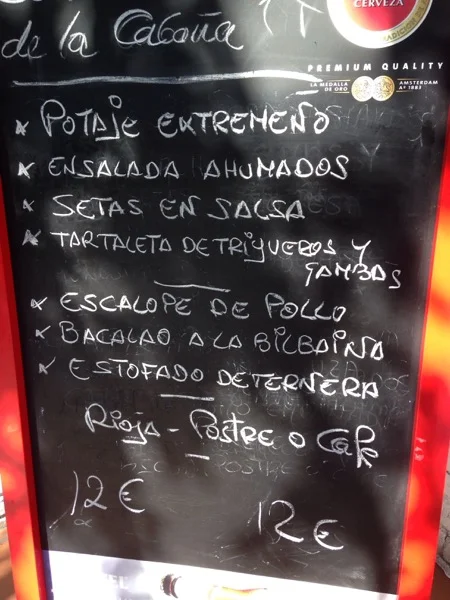 de la Cabaña
CERVEZA
PREMIUM QUALITY
LA MEDALLA DE ORO
AMSTERDAM Aº 1883
* POTAJE EXTREMEÑO
* ENSALADA AHUMADOS
* SETAS EN SALSA
* TARTALETA DE TRIGUEROS Y
GAMBAS
* ESCALOPE DE POLLO
* BACALAO A LA BILBAINA
* ESTOFADO DE TERNERA
Rioja - Postre o Cafe
12 €
12 €